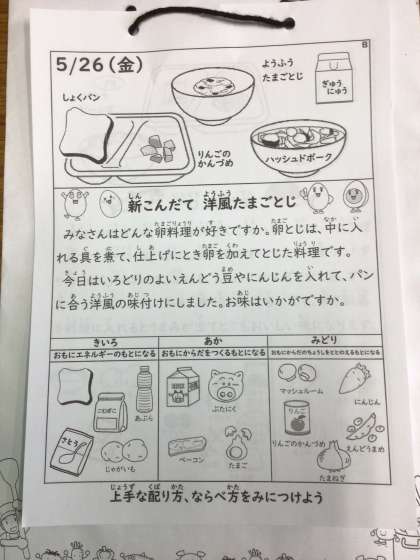 B
5/26(金)
ようふう
たまごとじ
ぎゅう
にゅう
しょくパン
りんごの
かんづめ
ハッシュドポーク
新こんだて 洋風たまごとじ
みなさんはどんな卵料理が好きですか。卵とじは、中に入
れる具を煮て、仕上げにとき卵を加えてとじた料理です。
今日はいろどりのよいえんどう豆やにんじんを入れて、パン
に合う洋風の味付けにしました。お味はいかがですか。
きいろ
おもにエネルギーのもとになる
あか
おもにからだをつくるもとになる
みどり
おもにからだのちょうしをととのえるもとになる
こむぎこ
あぶら
さとう
じゃがいも
ぶたにく
ベーコン
たまご
マッシュルーム
にんじん
りんご
りんごのかんづめ
えんどうまめ
たまねぎ
上手な配り方、ならべ方をみにつけよう